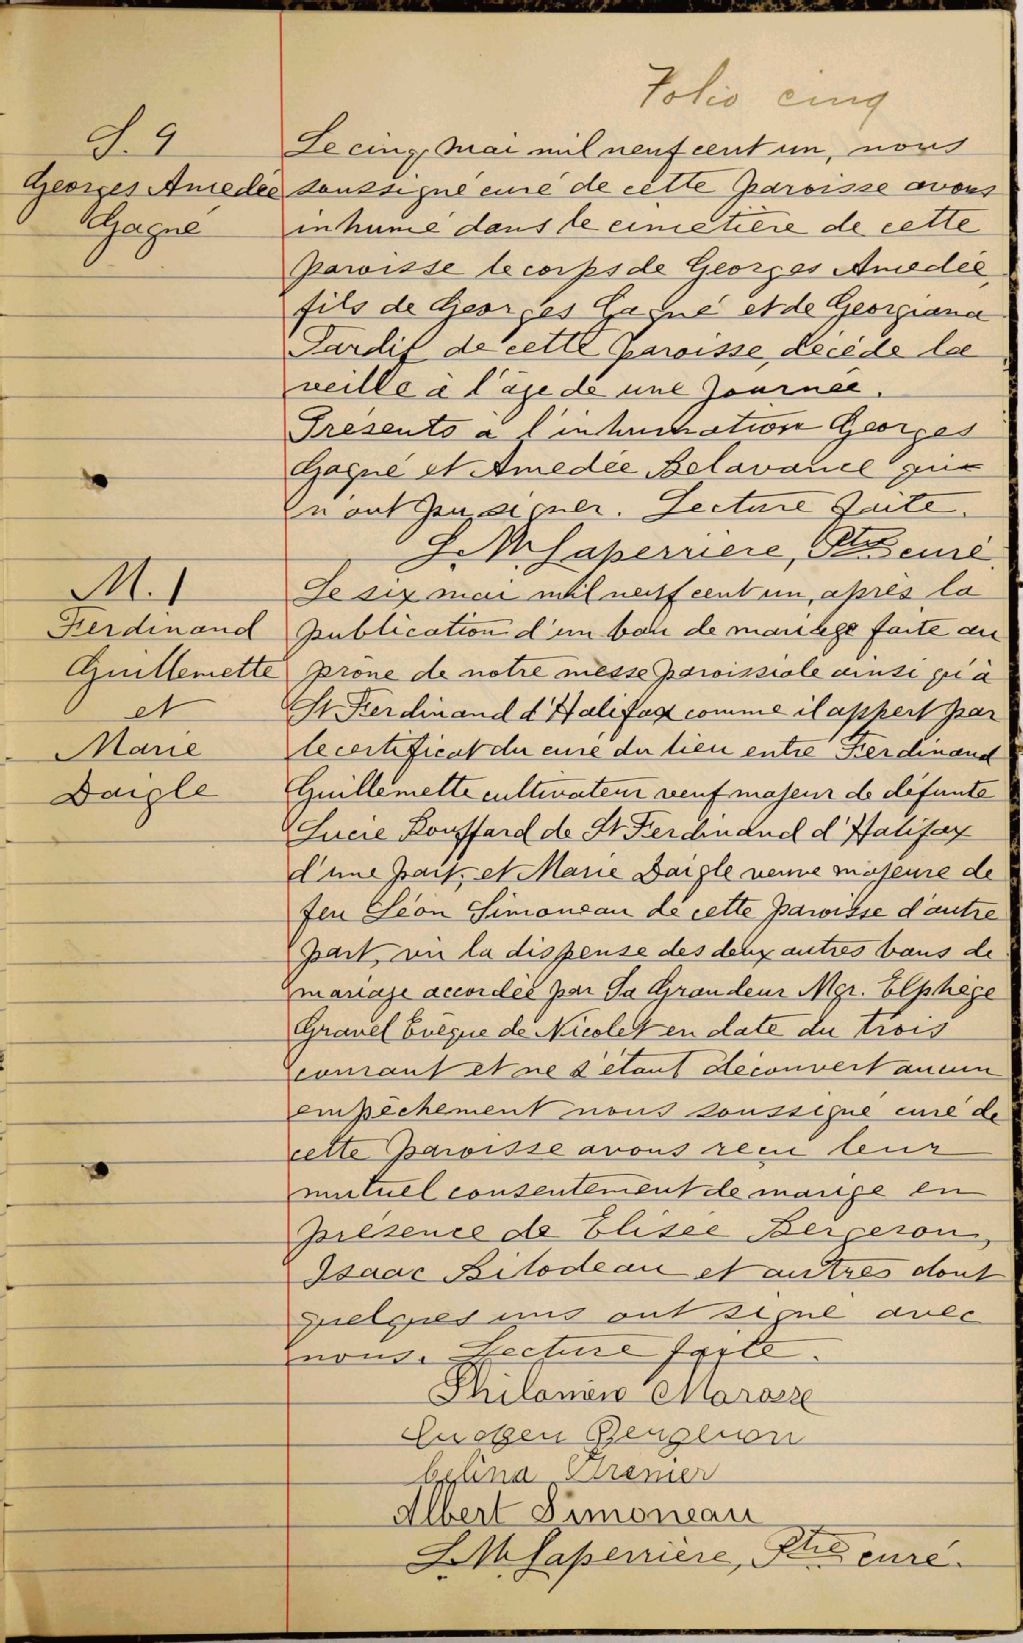 Folio cinq
S. 9
Georges Amedée
Gagné
Le cinq mai mil neuf cent un, nous
soussigné curé de cette paroisse avons
inhumé dans le cimetière de cette
paroisse le corps de Georges Amedée,
fils de Georges Gagné et de Georgiana
Tardif de cette paroisse, décédé la
veille à l'âge de une journée.
Présents à l'inhumation Georges
Gagné et Amedée Belavance qui
n'ont pu signer. Lecture faite.
L. M. Laperrière, Ptre curé
M. 1
Ferdinand
Guillemette
et
Marie
Daigle
Le six mai mil neuf cent un, après la
publication d'un ban de mariage faite au
prône de notre messe paroissiale ainsi qu'à
St Ferdinand d'Halifax comme il appert par
le certificat du curé du lieu entre Ferdinand
Guillemette cultivateur veuf majeur de défunte
Lucie Bouffard de St Ferdinand d'Halifax
d'une part, et Marie Daigle veuve majeure de
feu Léon Simoneau de cette paroisse d'autre
part, vu la dispense des deux autres bans de
mariage accordée par Sa Grandeur Mgr. Elphège
Gravel Evêque de Nicolet en date du trois
courant et ne s'étant découvert aucun
empêchement nous soussigné curé de
cette paroisse avons reçu leur
mutuel consentement de marige en
présence de Elisée Bergeron,
Isaac Bilodeau et autres dont
quelques uns ont signé avec
nous. Lecture faite.
Marasse
Bergeron
Celina Grenier
Albert Simoneau
L. M. Laperrière, Ptre curé.